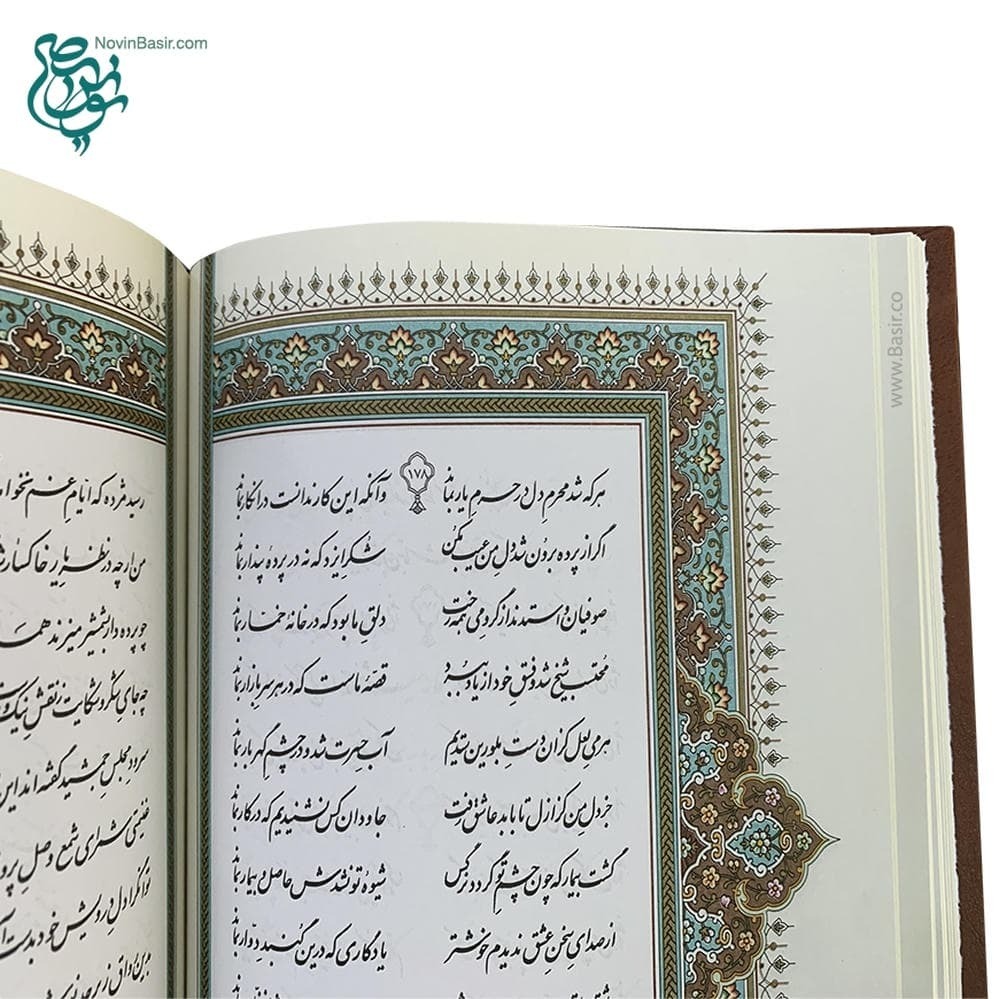 NovinBasir.com
www.Basir.co
۱۷۸
هر که شد محرمِ دل در حرمِ یار بماند وآنکه این کار ندانست در انکار بماند
اگر از پرده برون شد دلِ من عیب مکُن شکرِ ایزد که نه در پردهٔ پندار بماند
صوفیان واستدند از گروِ می همه رخت دلقِ ما بود که در خانهٔ خمّار بماند
محتسب شیخ شد و فسقِ خود از یاد ببرد قصّهٔ ماست که در هر سرِ بازار بماند
هر میِ لعل کزان دستِ بلورین ستدیم آبِ حسرت شد و در چشمِ گهربار بماند
جز دلِ من کز ازل تا بابد عاشق رفت جاودان کس نشنیدیم که در کار بماند
گشت بیمار که چون چشمِ تو گردد نرگس شیوهٔ تو نشدش حاصل و بیمار بماند
از صدایِ سخنِ عشق ندیدم خوشتر یادگاری که درین گنبدِ دوّار بماند
رسید مژده که ایّامِ غم نخواهد
من ارچه در نظرِ یار خاکسار
چو پرده دار بشمشیر میزند همه
چه جایِ شکر و شکایت ز نقشِ نیک و
سرودِ مجلسِ جمشید گفته اند این
غنیمتی شمر ای شمع وصلِ
توانگرا دلِ درویشِ خود بدست